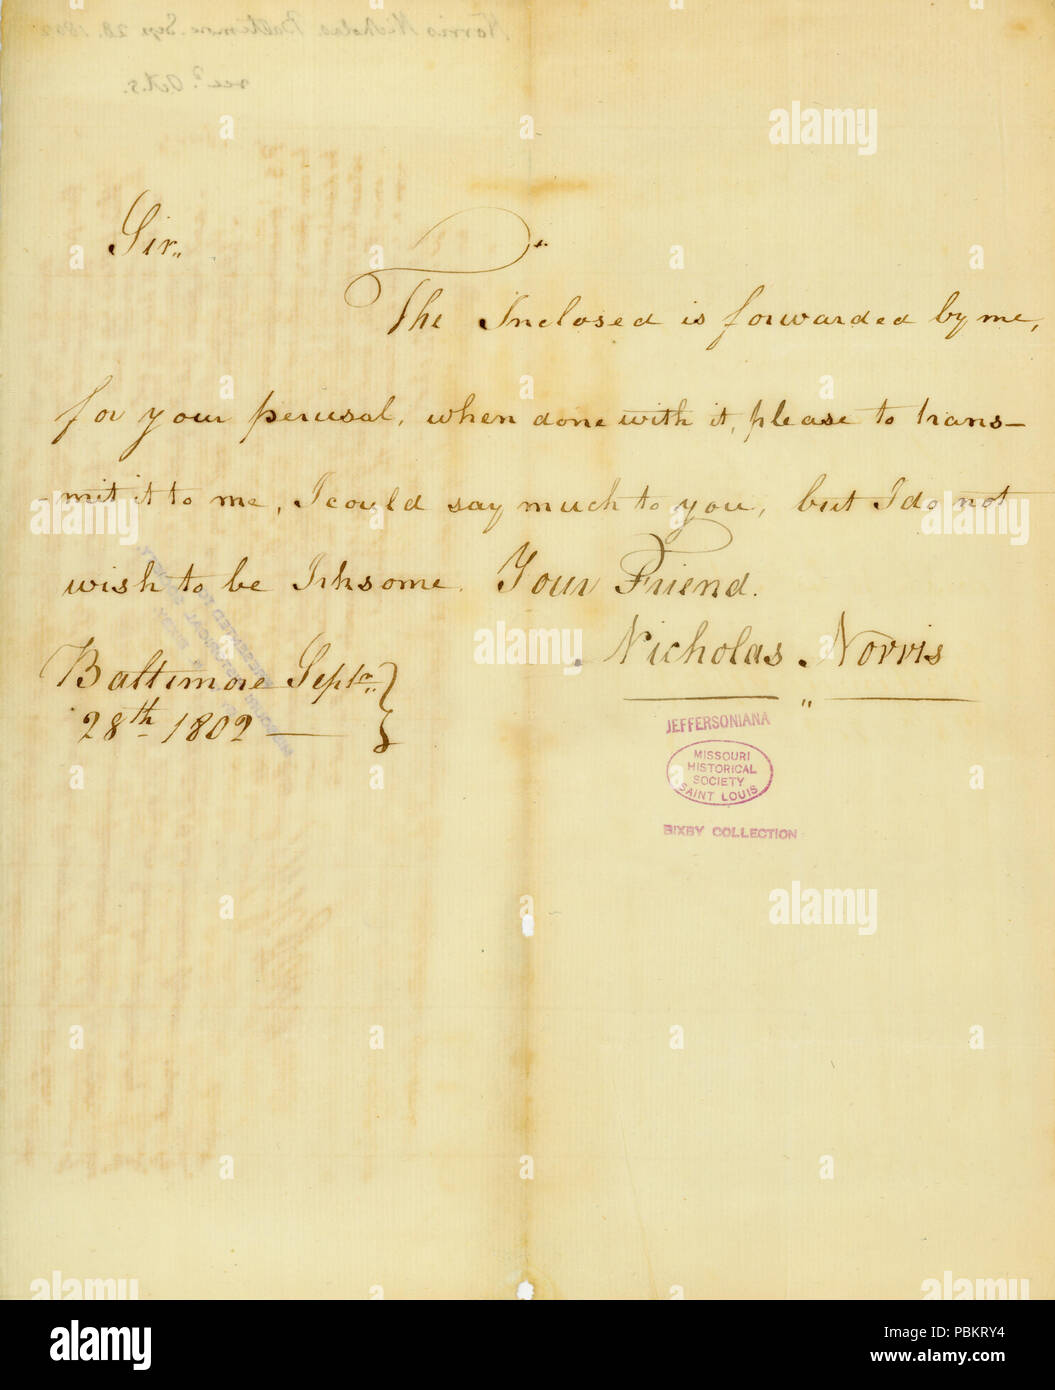 Norris Nicholas. Baltimore. Sep. 28. 1802
recd. Oct. 5.
Sir,,
The Inclosed is forwarded by me,
for your perusal, when done with it, please to trans-
-mit it to me, I could say much to you, but I do not
wish to be Irksome. Your Friend.
Nicholas Norris
Baltimore Septr.
28th 1802
JEFFERSONIANA
MISSOURI
HISTORICAL
SOCIETY
SAINT LOUIS
BIXBY COLLECTION
alamy
Image ID: PBKRY4
www.alamy.com